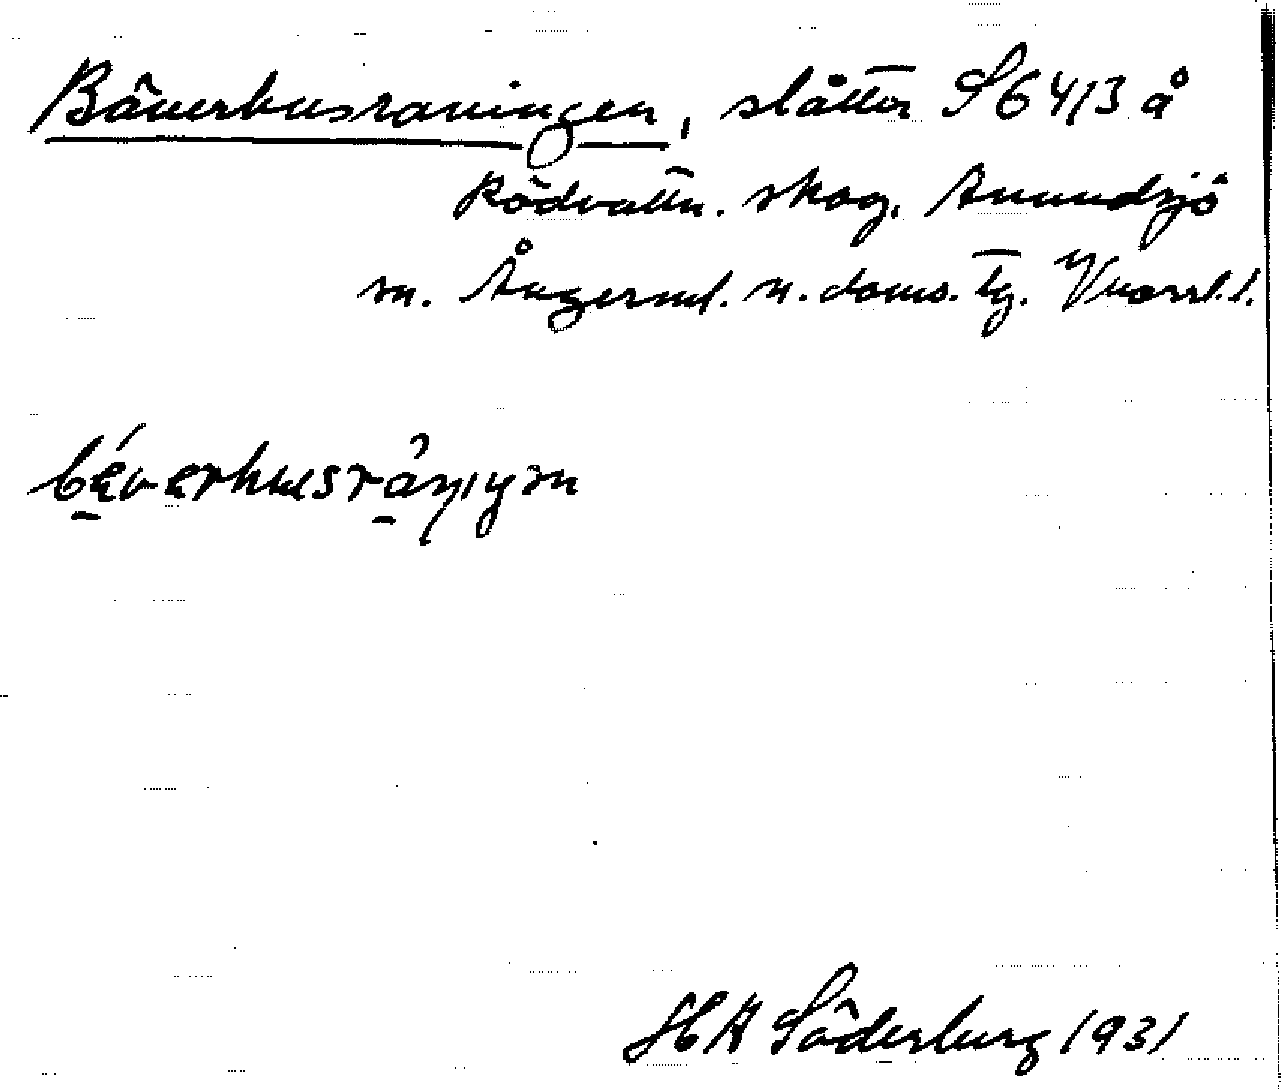 Bäverhusraningen, slåtter S 64/3 å
Rödvattn. skog, Anundsjö
sn. Ångerml. n. doms. tg. Vnorrl. l.
bäverhusrånıŋen
H K Söderburg 1931